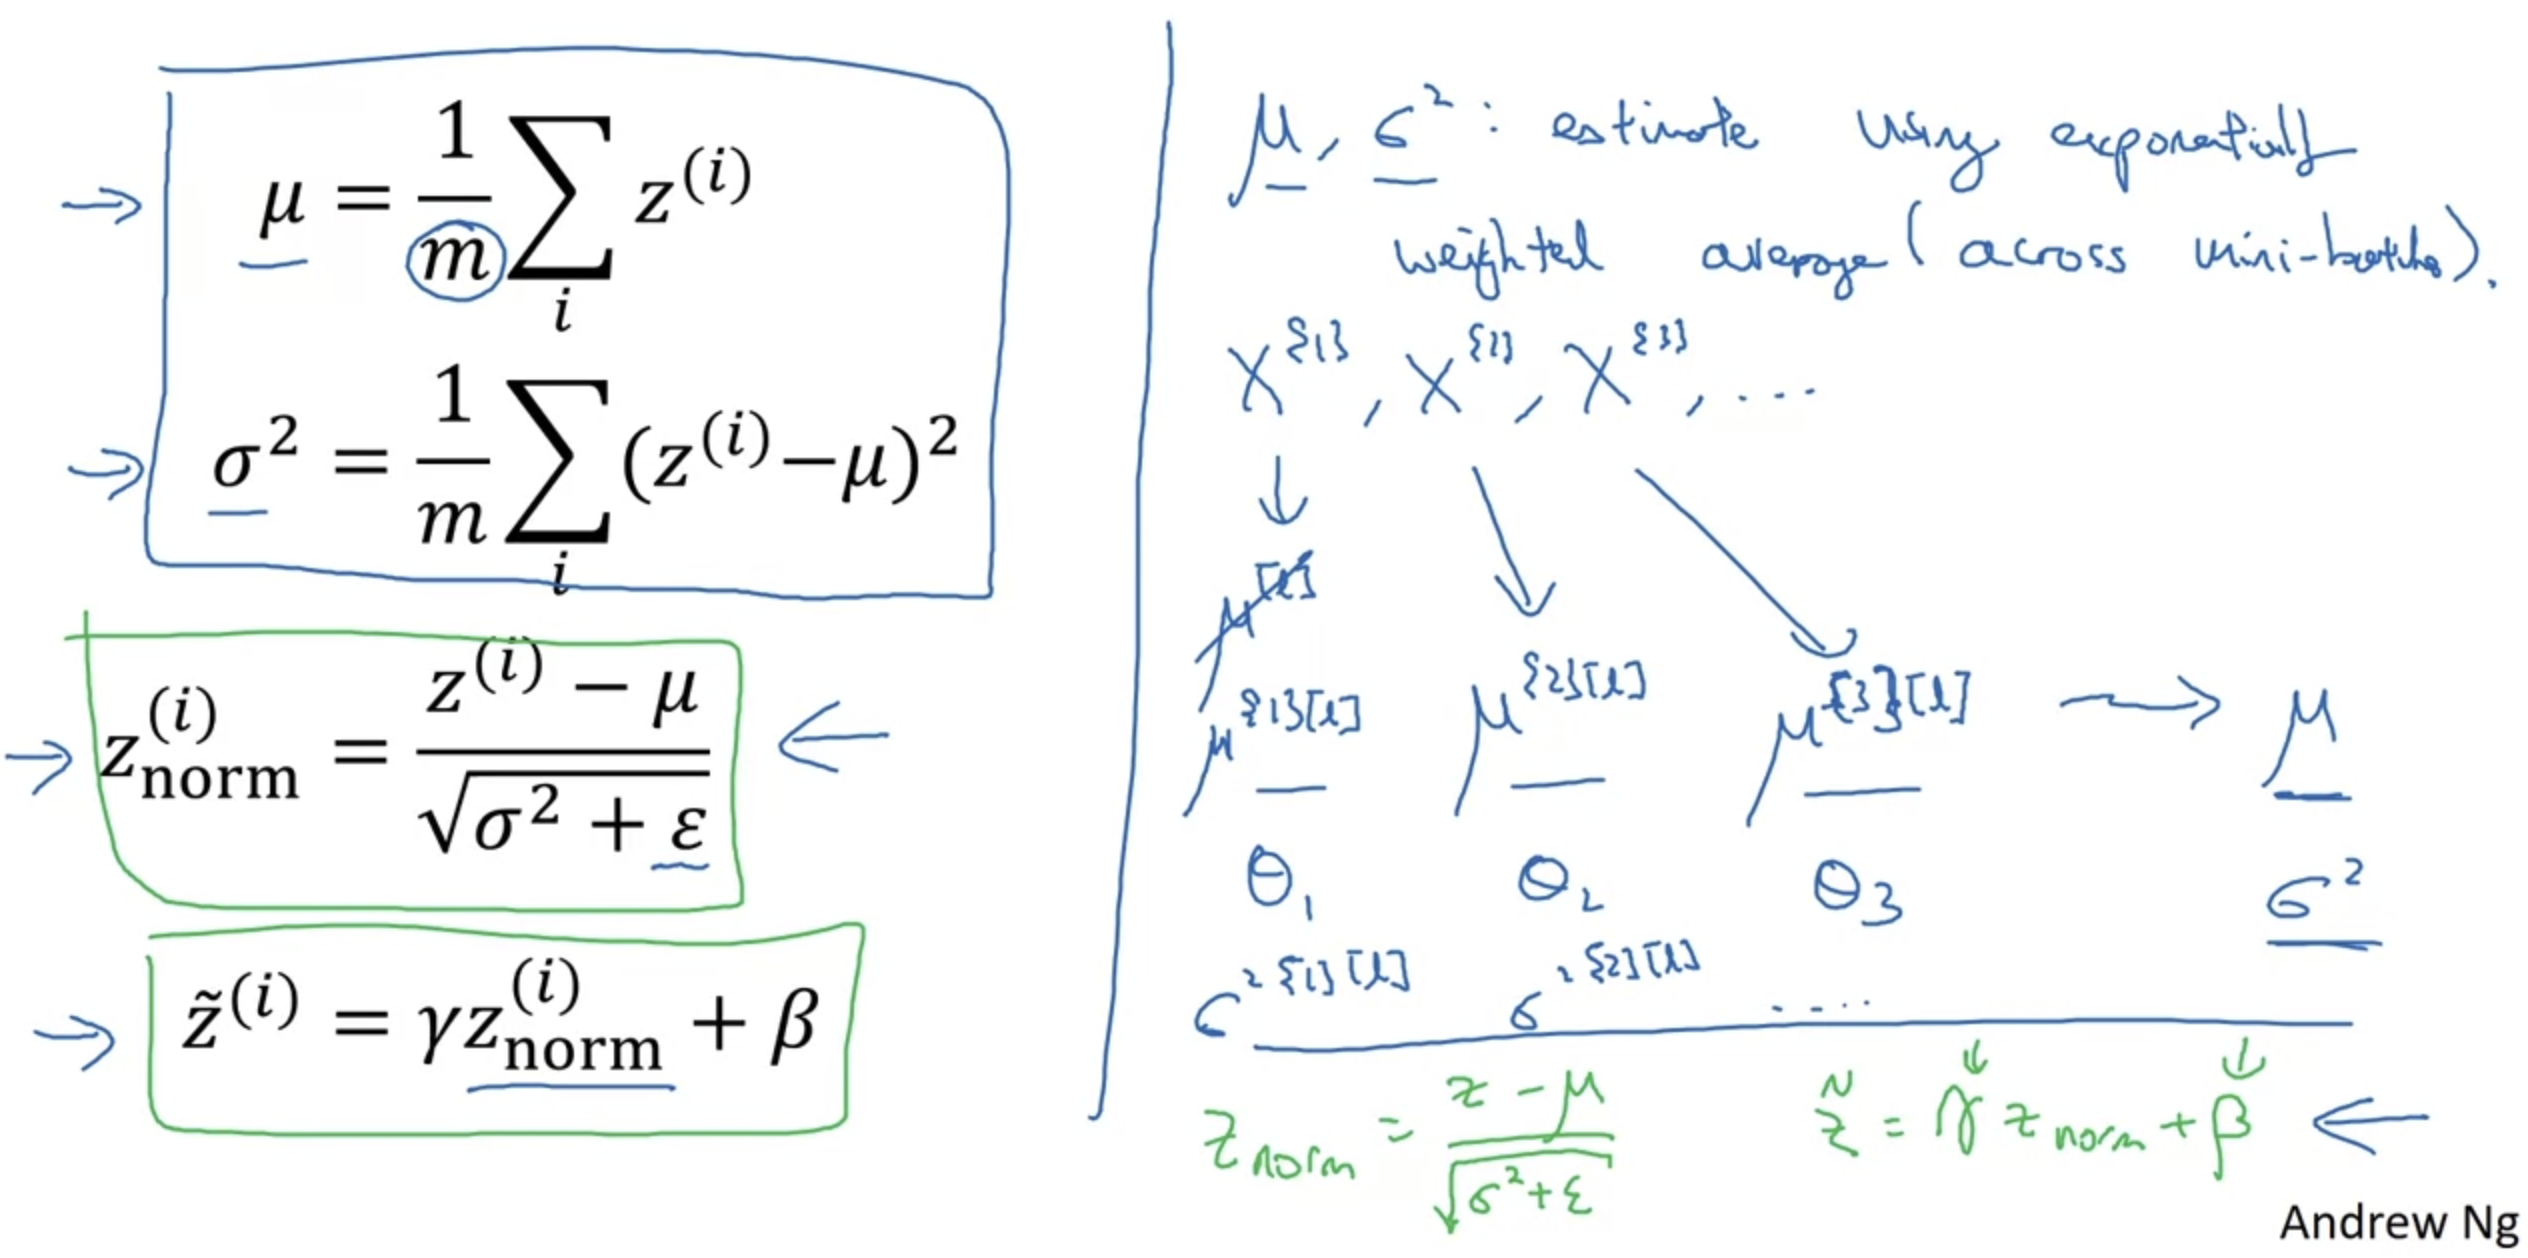 μ = 1/m ∑_i z^(i)
σ² = 1/m ∑_i (z^(i)−μ)²
z_norm^(i) = (z^(i) − μ) / √(σ² + ε)
z̃^(i) = γz_norm^(i) + β
μ, σ² : estimate using exponentially
weighted average (across mini-batches).
X^{1}, X^{2}, X^{3}, ....
μ^[l]
μ^{1}[l] μ^{2}[l] μ^{3}[l] → μ
θ₁ θ₂ θ₃ σ²
σ²^{1}[l] σ²^{2}[l] ....
z_norm = (z − μ) / √(σ² + ε) z̃ = γ z_norm + β
Andrew Ng